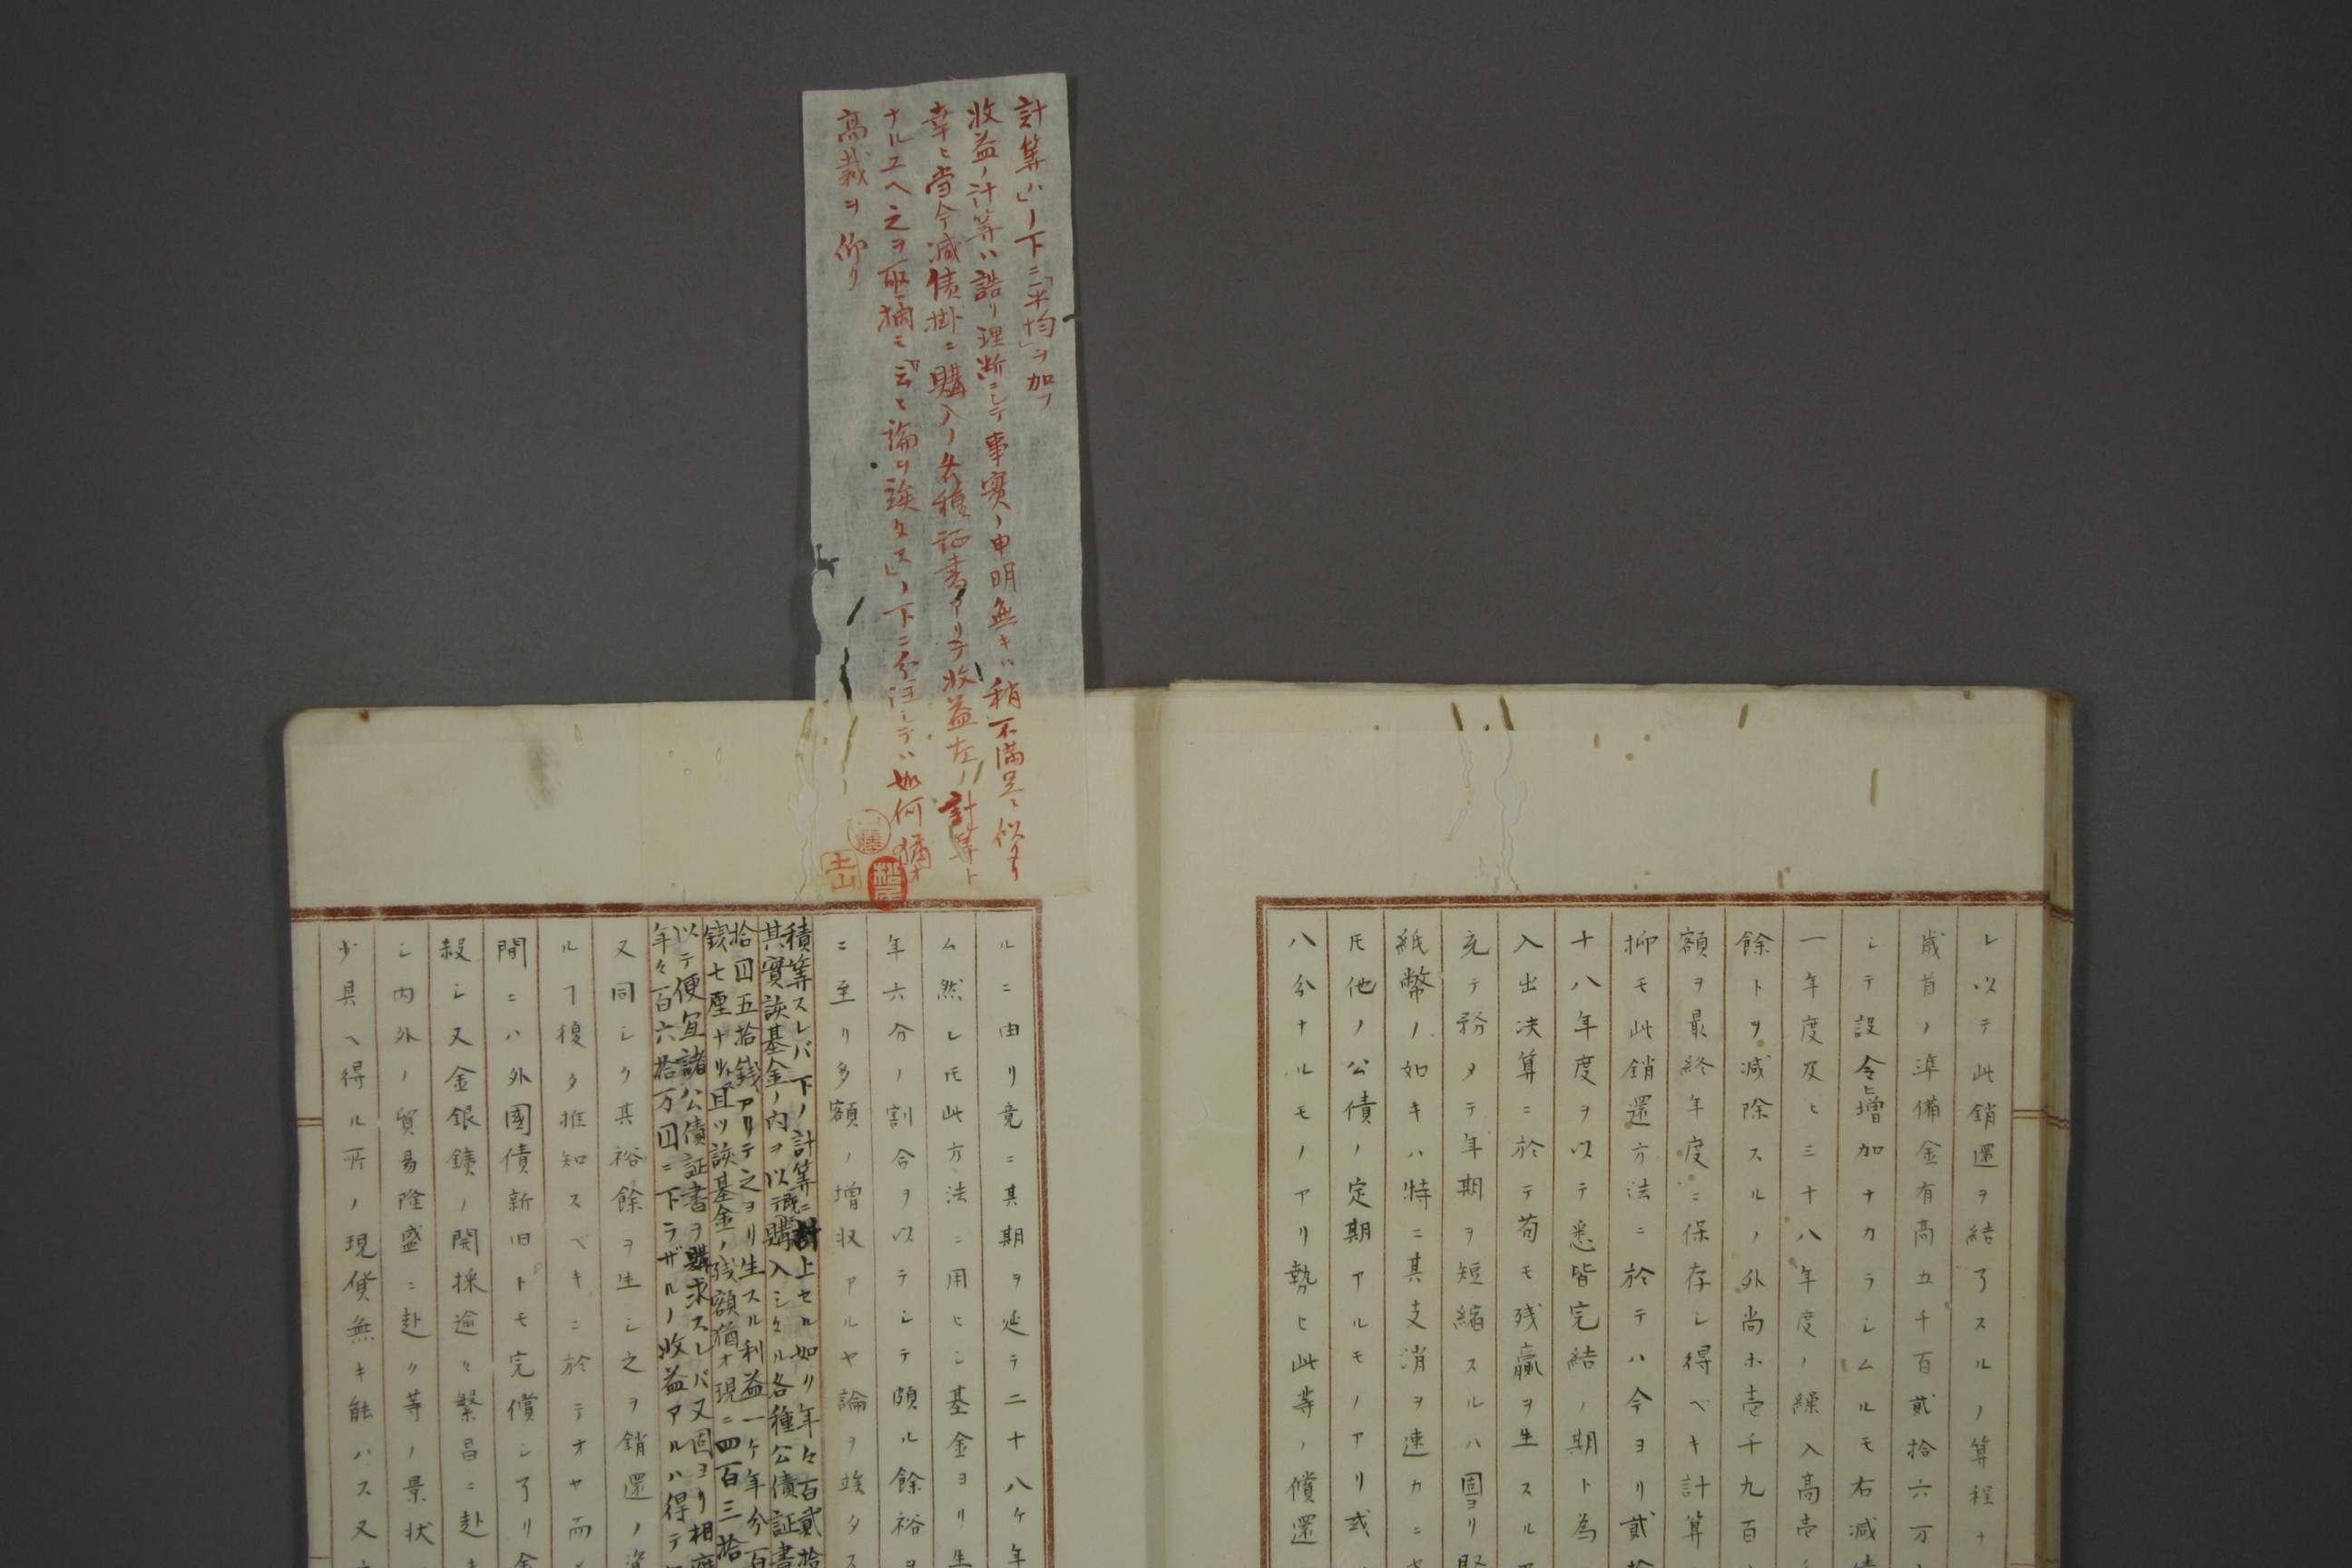 計算ハ」ノ下ニ「平均」ヲ加フ
收益ノ計算ハ誥リ理断ニシテ事実ノ申明無キハ稍不満足ニ似タリ
幸ヒ当今減債掛ニ購入ノ各種証書アリテ收益左ノ計算ト
ナルユヘ之ヲ取摘ミ「云々論ヲ誒タス」ノ下ニ分注シテハ如何猶オ
高裁ヲ仰ク
土山
レ以テ此銷還ヲ結了スルノ算程ナ
歳首ノ準備金有高五千百貳拾六万
シテ設令ヒ増加ナカラシムルモ右減債
一年度及ヒ三十八年度ノ繰入高壱千
餘トヲ減除スルノ外尚ホ壱千九百
額ヲ最終年度ニ保存シ得ベキ計算
抑モ此銷還方法ニ於テハ今ヨリ貳拾
十八年度ヲ以テ悉皆完結ノ期ト為
入出决算ニ於テ苟モ残贏ヲ生スル
充テ務メテ年期ヲ短縮スルハ固ヨリ
紙幣ノ如キハ特ニ其支消ヲ速カニ
氏他ノ公債ノ定期アルモノアリ或
八分ナルモノアリ勢ヒ此等ノ償還
ルニ由リ竟ニ其期ヲ延テ二十八ケ年
ム然レ氏此方法ニ用ヒシ基金ヨリ生
年六分ノ割合ヲ以テシテ頗ル餘裕ヲ
ニ至リ多額ノ増収アルヤ論ヲ竢タス
積算スレバ下ノ計算ニ計上セル如リ年々百貳拾
其實該基金ノ内ヲ以テ既ニ購入シタル各種公債証書
拾四五拾銭アリテ之ヨリ生スル利益一ケ年分百
銭七厘ナリ且ツ該基金ノ残額猶オ現ニ四百三拾
以テ便宜諸公債証書ヲ購求スレバ又固ヨリ相應
年々百六拾万円ニ下ラザルノ收益アルハ得テ
又同シク其裕餘ヲ生シ之ヲ銷還ノ資
ルヿ復タ推知スベキニ於テオヤ而
間ニハ外國債新旧トモ完償シ了リ金
殺シ又金銀鑛ノ開採逾々繁昌ニ赴キ
シ内外ノ貿易隆盛ニ赴ク等ノ景状
少具ヘ得ル所ノ現貨無キ能ハス又